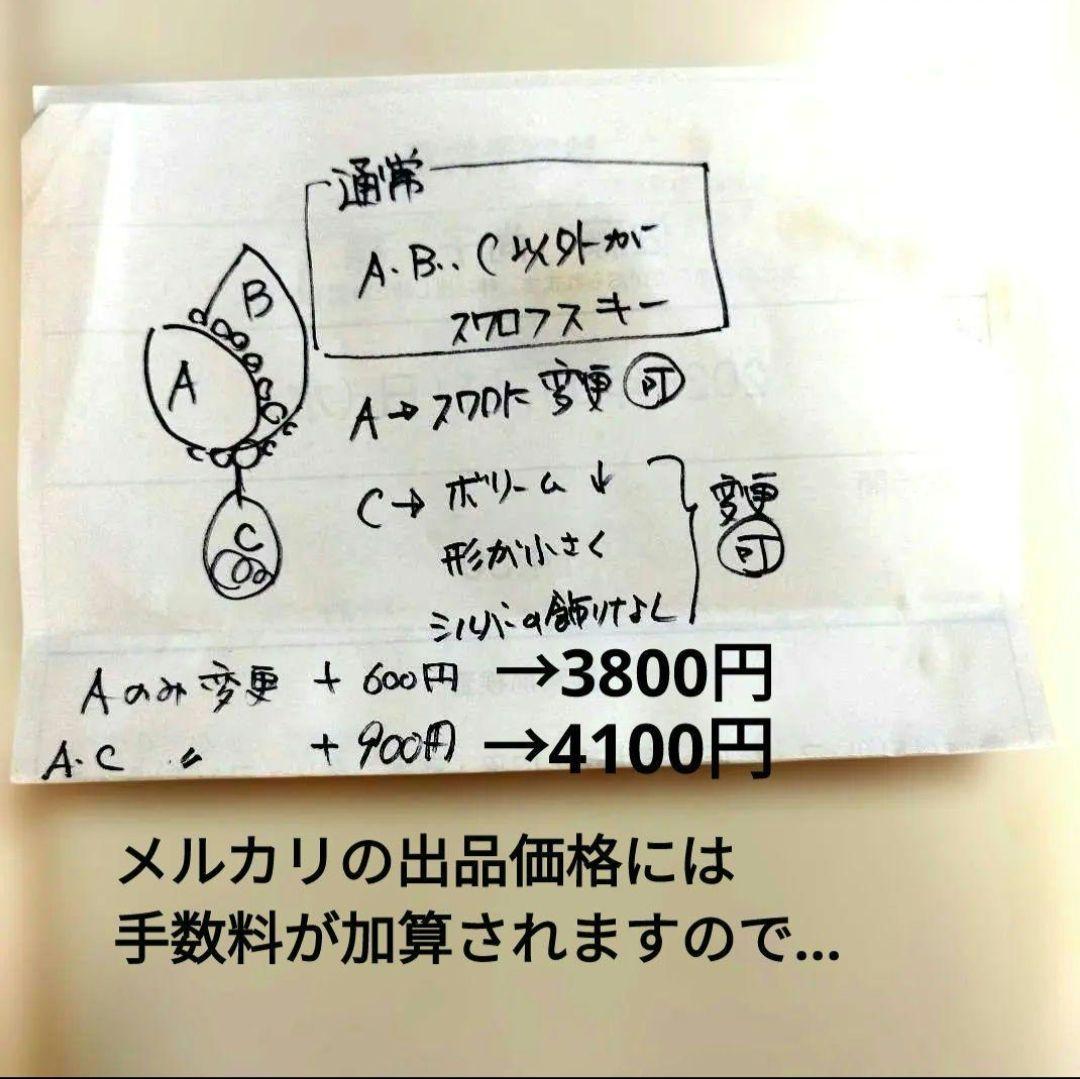 通常
A.B..C以外が
スワロフスキー
B
A
C
A→スワロに変更 可
C→ボリーム↓
形が小さく
シルバーの飾りなし
変更
可
Aのみ変更 +600円 →3800円
A.C 〃 +900円 →4100円
メルカリの出品価格には
手数料が加算されますので...